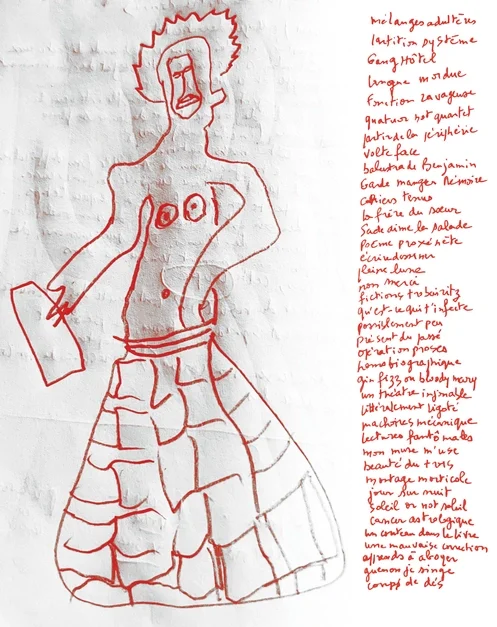 mélanges adultères
partition système
Gang Hôtel
langue mordue
fonction ravageuse
quatuor not quartet
partir de la périphérie
volte face
balustrade Benjamin
Garde manger Mémoire
cahiers tenus
la frère du soeur
Sade aime la salade
poème proxénète
écrire dessiner
pleine lune
non merci
fictions trobairitz
qu'est-ce qui t'infecte
possiblement peu
présent du passé
opération proses
homobiographique
gin fizz ou bloody mary
un théâtre infinable
littéralement ligoté
machoires mécanique
lectures fantômales
mon mure m'use
beauté du
montage morticole
jour sur nuit
soleil or not soleil
cancer astrologique
un couteau dans le livre
une mauvaise correction
apprends à aboyer
guenon je singe
coups de dés